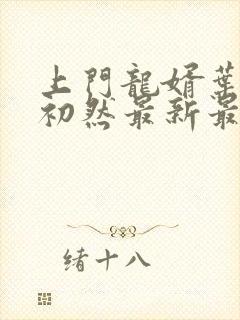 上門龍婿葉
初然最新最
緒十八